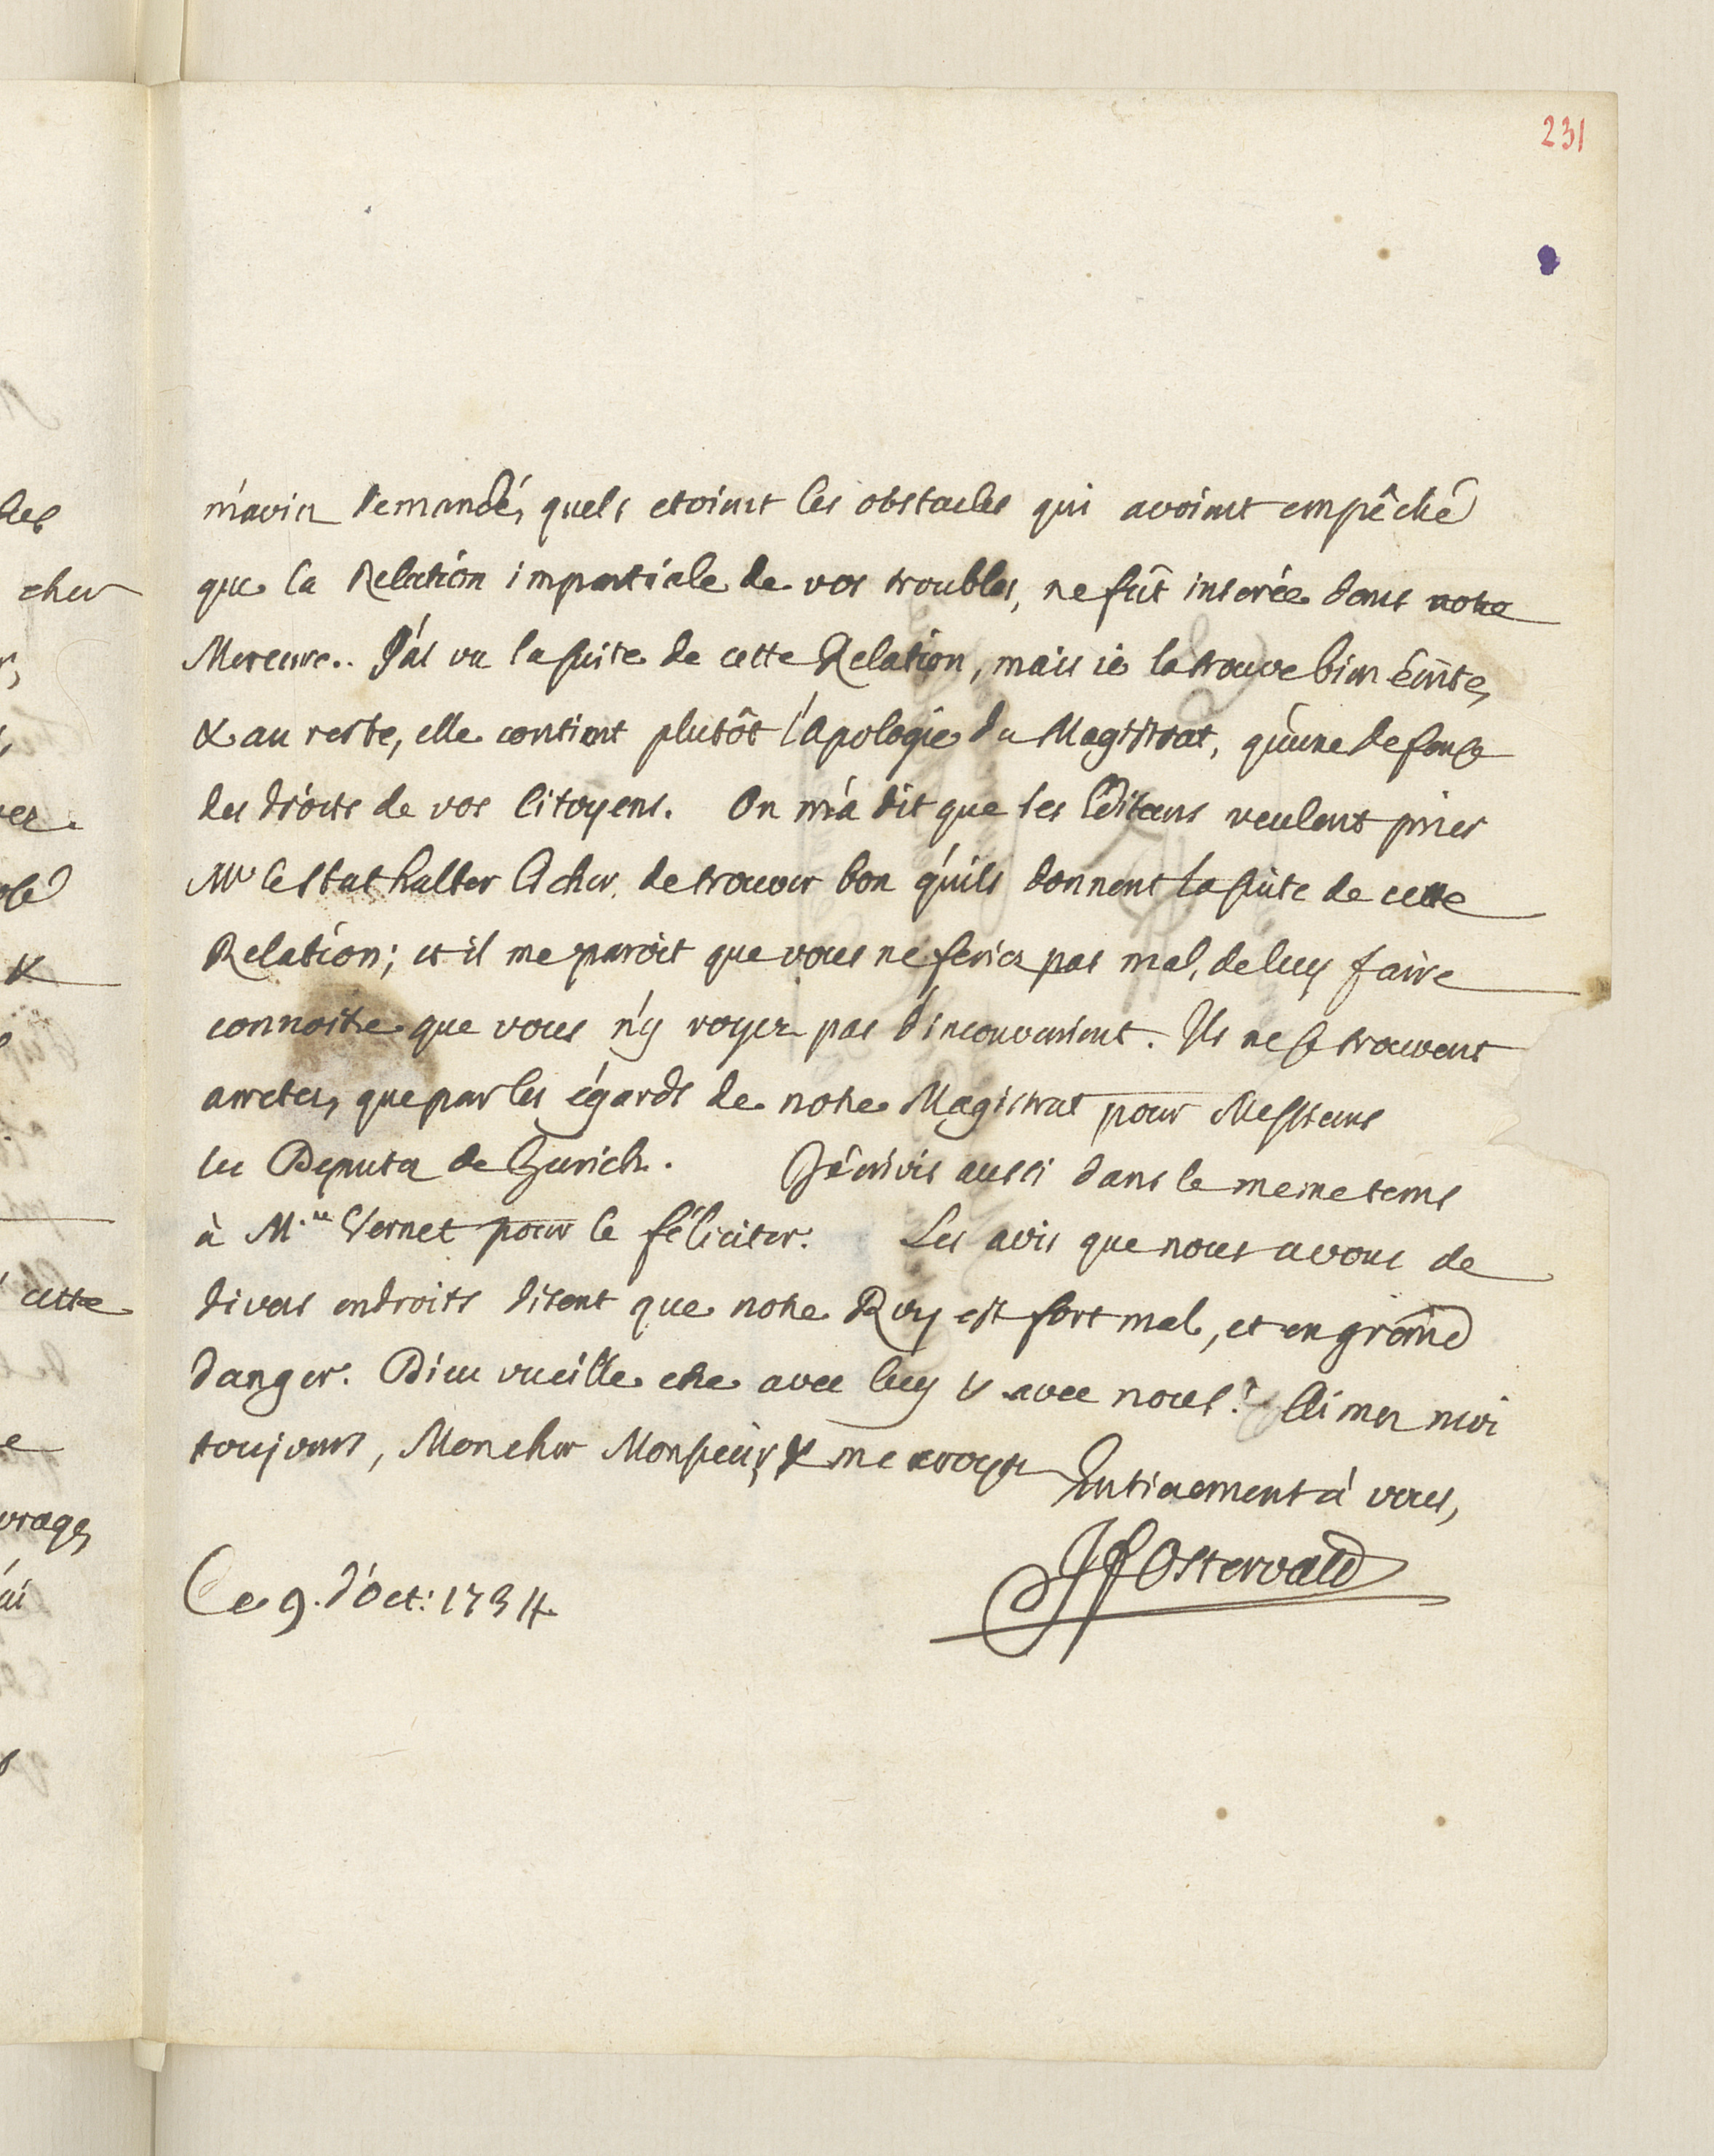 231
m'aviez demandé, quels etoient les obstacles qui avoient empêché
que la Relation impartiale de vos troubles, ne fût inserée dans notre
Mercure.. J'ai vu la suite de cette Relation, mais je la trouve bien écritte,
& au reste, elle contient plutôt l'Apologie du Magistrat, qu'une defense
des droits de vos Citoyens. On m'a dit que les Editeurs veulent prier
Mr le Stathalter Escher, de trouver bon qu'ils donnent la suite de cette
Relation; et il me paroit que vous ne feriez pas mal, de luy faire
connoitre que vous n'y voyez pas d'inconvenient. Ils ne se trouvent
arretez, que par les égards de notre Magistrat pour Messieurs
les Deputez de Zurich. J'écrivis aussi dans le meme tems
à Mr. Vernet pour le féliciter. Les avis que nous avons de
divers endroits disent que notre Roy est fort mal, et en grand
danger. Dieu vueille etre avec luy & avec nous! Aimez moi
toujours, Mon cher Monsieur, & me croyez Entierement à vous,
JfOstervald
Ce 9. d'Oct: 1734
des
cher
cette